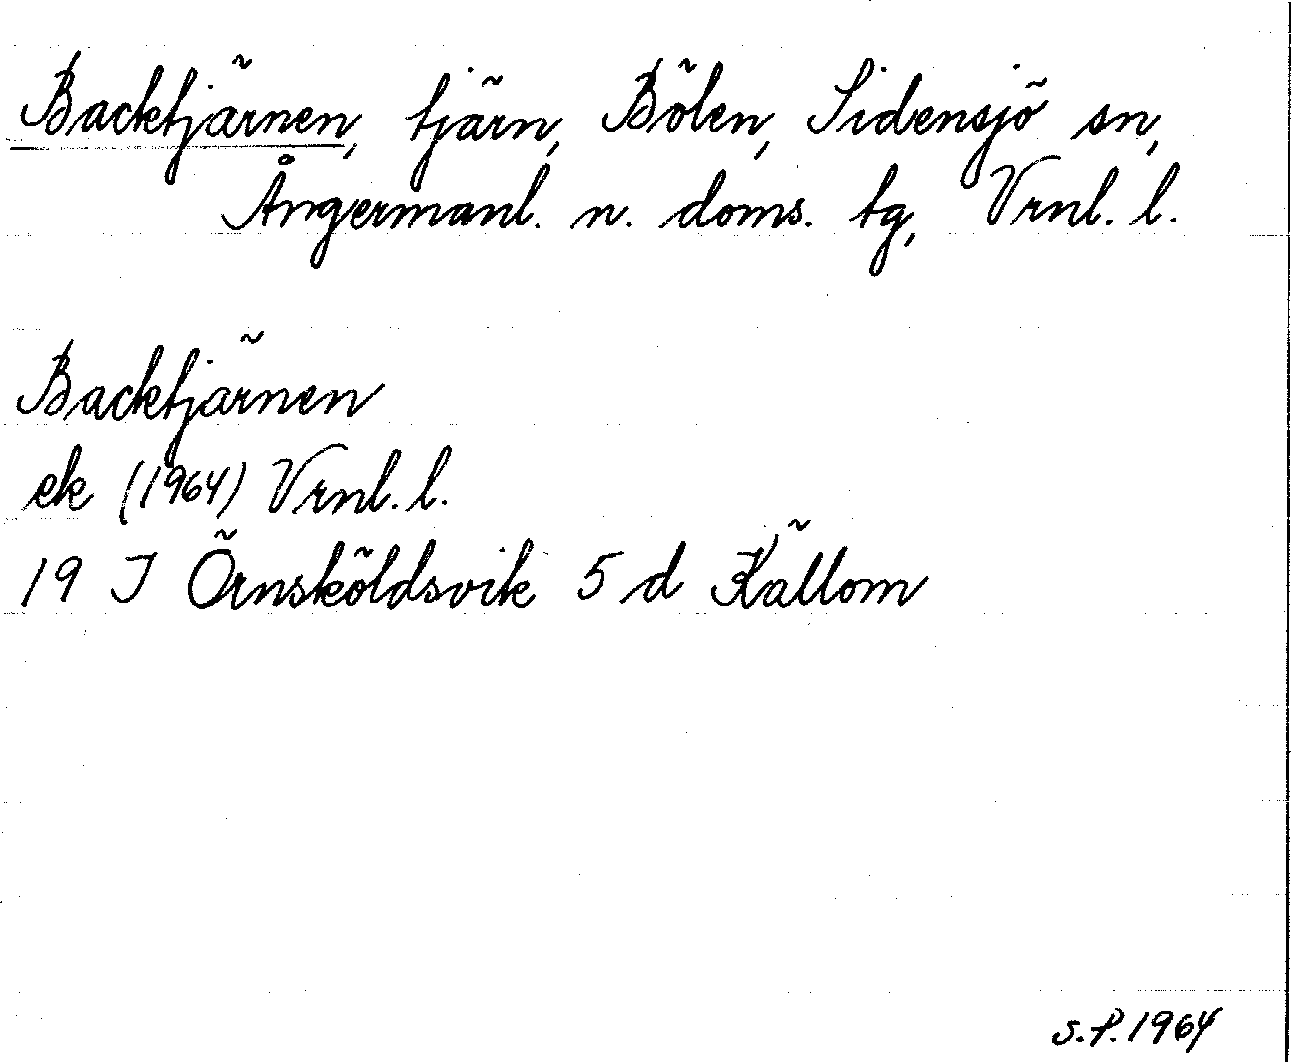 Backtjärnen, tjärn, Bölen, Sidensjö sn,
Ångermanl. n. doms. tg, Vrnl. l.
Backtjärnen
ek (1964) Vrnl. l.
19 J Örnsköldsvik 5 d Källom
S.P. 1964